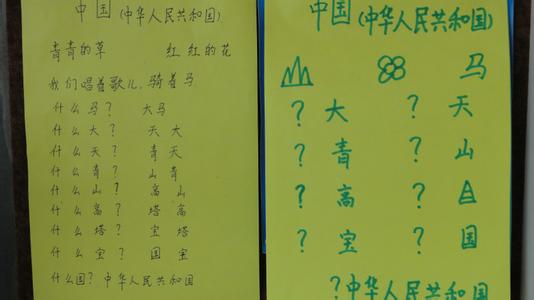 中国(中华人民共和国)
青青的草 红红的花
我们唱着歌儿,骑着马
什么马? 大马
什么大? 天大
什么天? 青天
什么青? 山青
什么山? 高山
什么高? 塔高
什么塔? 宝塔
什么宝? 国宝
什么国? 中华人民共和国
中国(中华人民共和国)
马
? 大 ? 天
? 青 ? 山
? 高 ?
? 宝 ? 国
?中华人民共和国